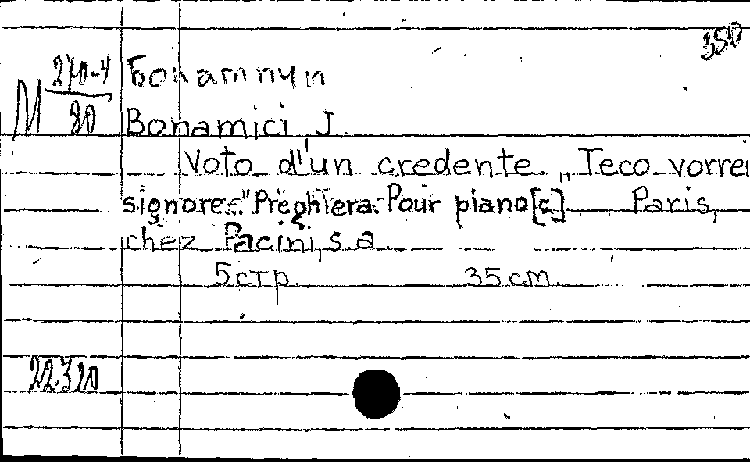 350
М 270-4
80
Бонатпчи
Bonamici J.
Voto d'un credente. „Teco vorrei
signore." Preghiera. Pour piano[c] Paris,
chez Pacini, s.a
5 стр. 35 cm.
22320